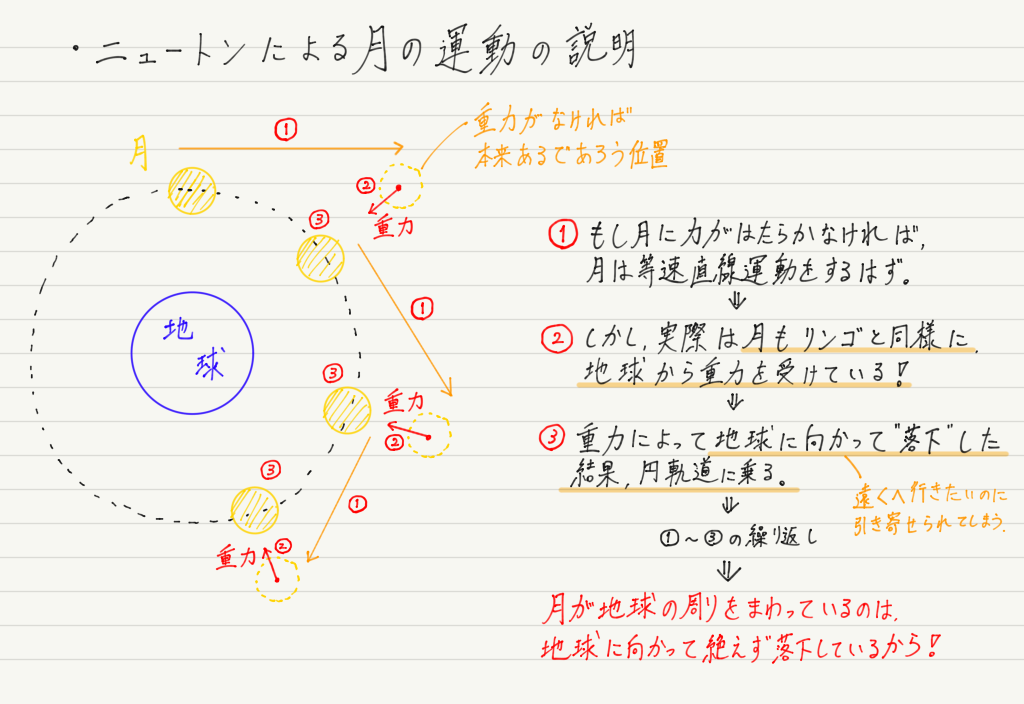 ・ニュートンによる月の運動の説明
月
①
重力がなければ
本来あるであろう位置
②
重力
③
①
地球
③
重力
②
③
①
重力
②
① もし月に力がはたらかなければ,
月は等速直線運動をするはず。
⇓
② しかし,実際は月もリンゴと同様に,
地球から重力を受けている!
⇓
③ 重力によって地球に向かって"落下"した
結果,円軌道に乗る。
遠くへ行きたいのに
引き寄せられてしまう.
⇓
①~③の繰り返し
⇓
月が地球の周りをまわっているのは,
地球に向かって絶えず落下しているから!